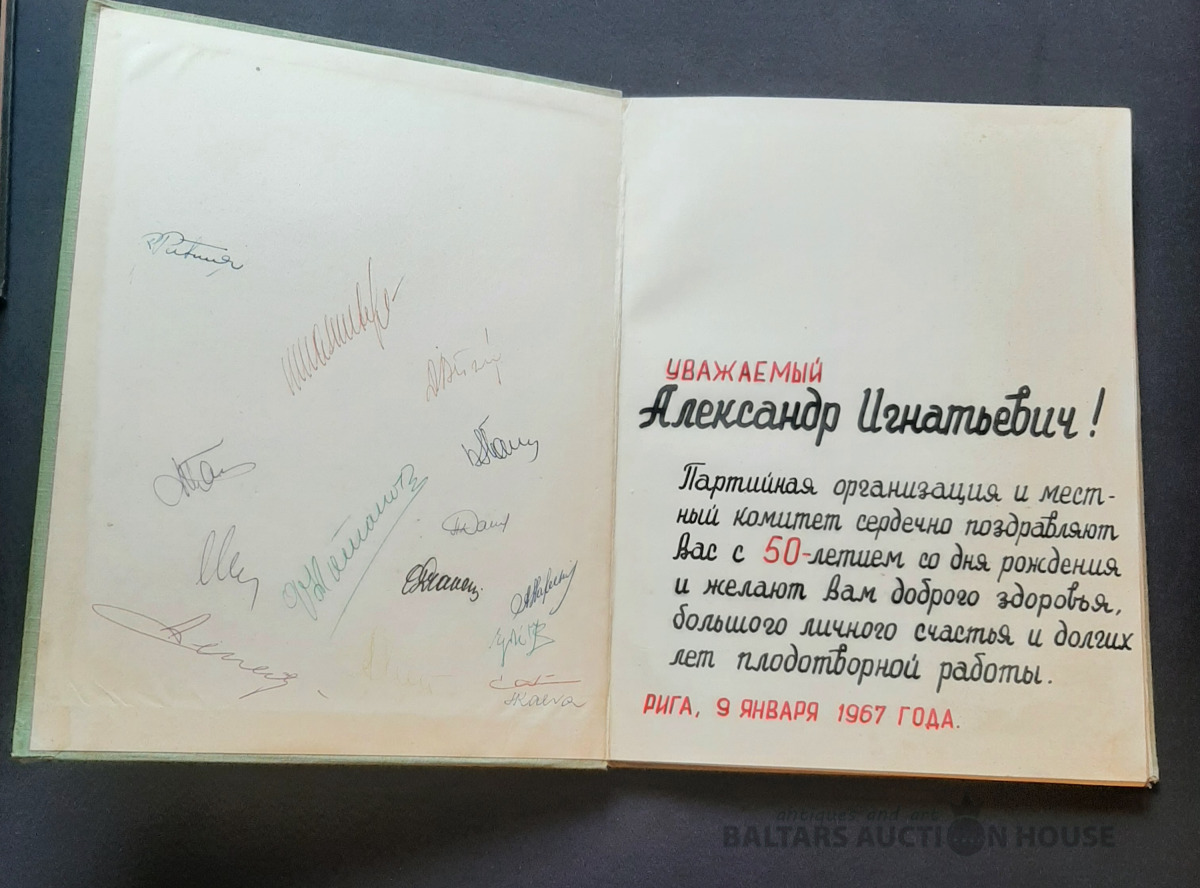 УВАЖАЕМЫЙ
Александр Игнатьевич!
Партийная организация и мест-
ный комитет сердечно поздравляют
Вас с 50-летием со дня рождения
и желают Вам доброго здоровья,
большого личного счастья и долгих
лет плодотворной работы.
РИГА, 9 ЯНВАРЯ 1967 ГОДА.
antiques and art
BALTARS AUCTION HOUSE